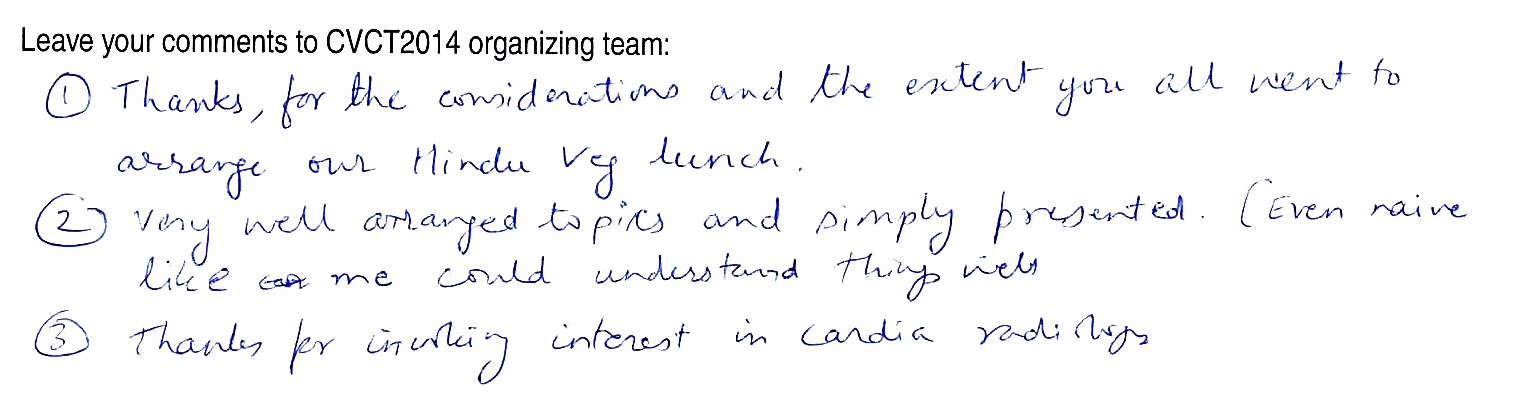 Leave your comments to CVCT2014 organizing team:
① Thanks, for the considerations and the extent you all went to
arrange our Hindu Veg lunch.
② Very well arranged topics and simply presented. (Even naive
like me could understand things well
③ Thanks for invoking interest in cardia radiology